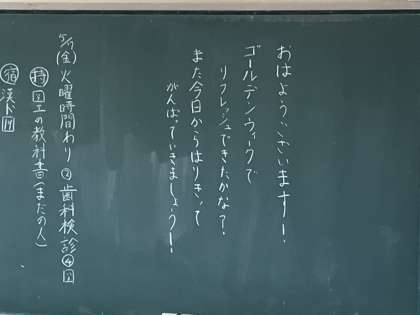 おはようございます!
ゴールデンウィークで
リフレッシュできたかな?
また今日からはりきって
がんばっていきましょう!
5/7(金) 火曜時間わり ②歯科検診 ④図
持 図工の教科書(まだの人)
宿 漢ド14